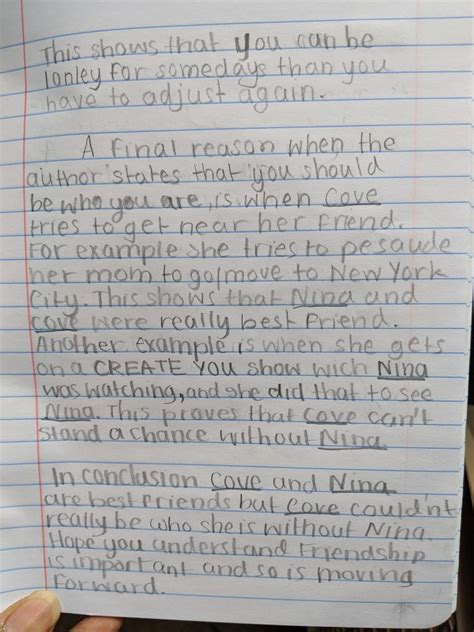 This shows that you can be
lonley for somedays than you
have to adjust again.
A final reason when the
author states that you should
be who you are, is when Cove
tries to get near her friend.
For example she tries to pesaude
her mom to go/move to New York
City. This shows that Nina and
cove were really best friend.
Another example is when she gets
on a CREATE YOU show wich Nina
was watching, and she did that to see
Nina. This proves that Cove can't
stand a chance without Nina
In conclusion Cove and Nina
are best friends but Cove could'nt
really be who she is without Nina.
Hope you understand friendship
is important and so is moving
forward.